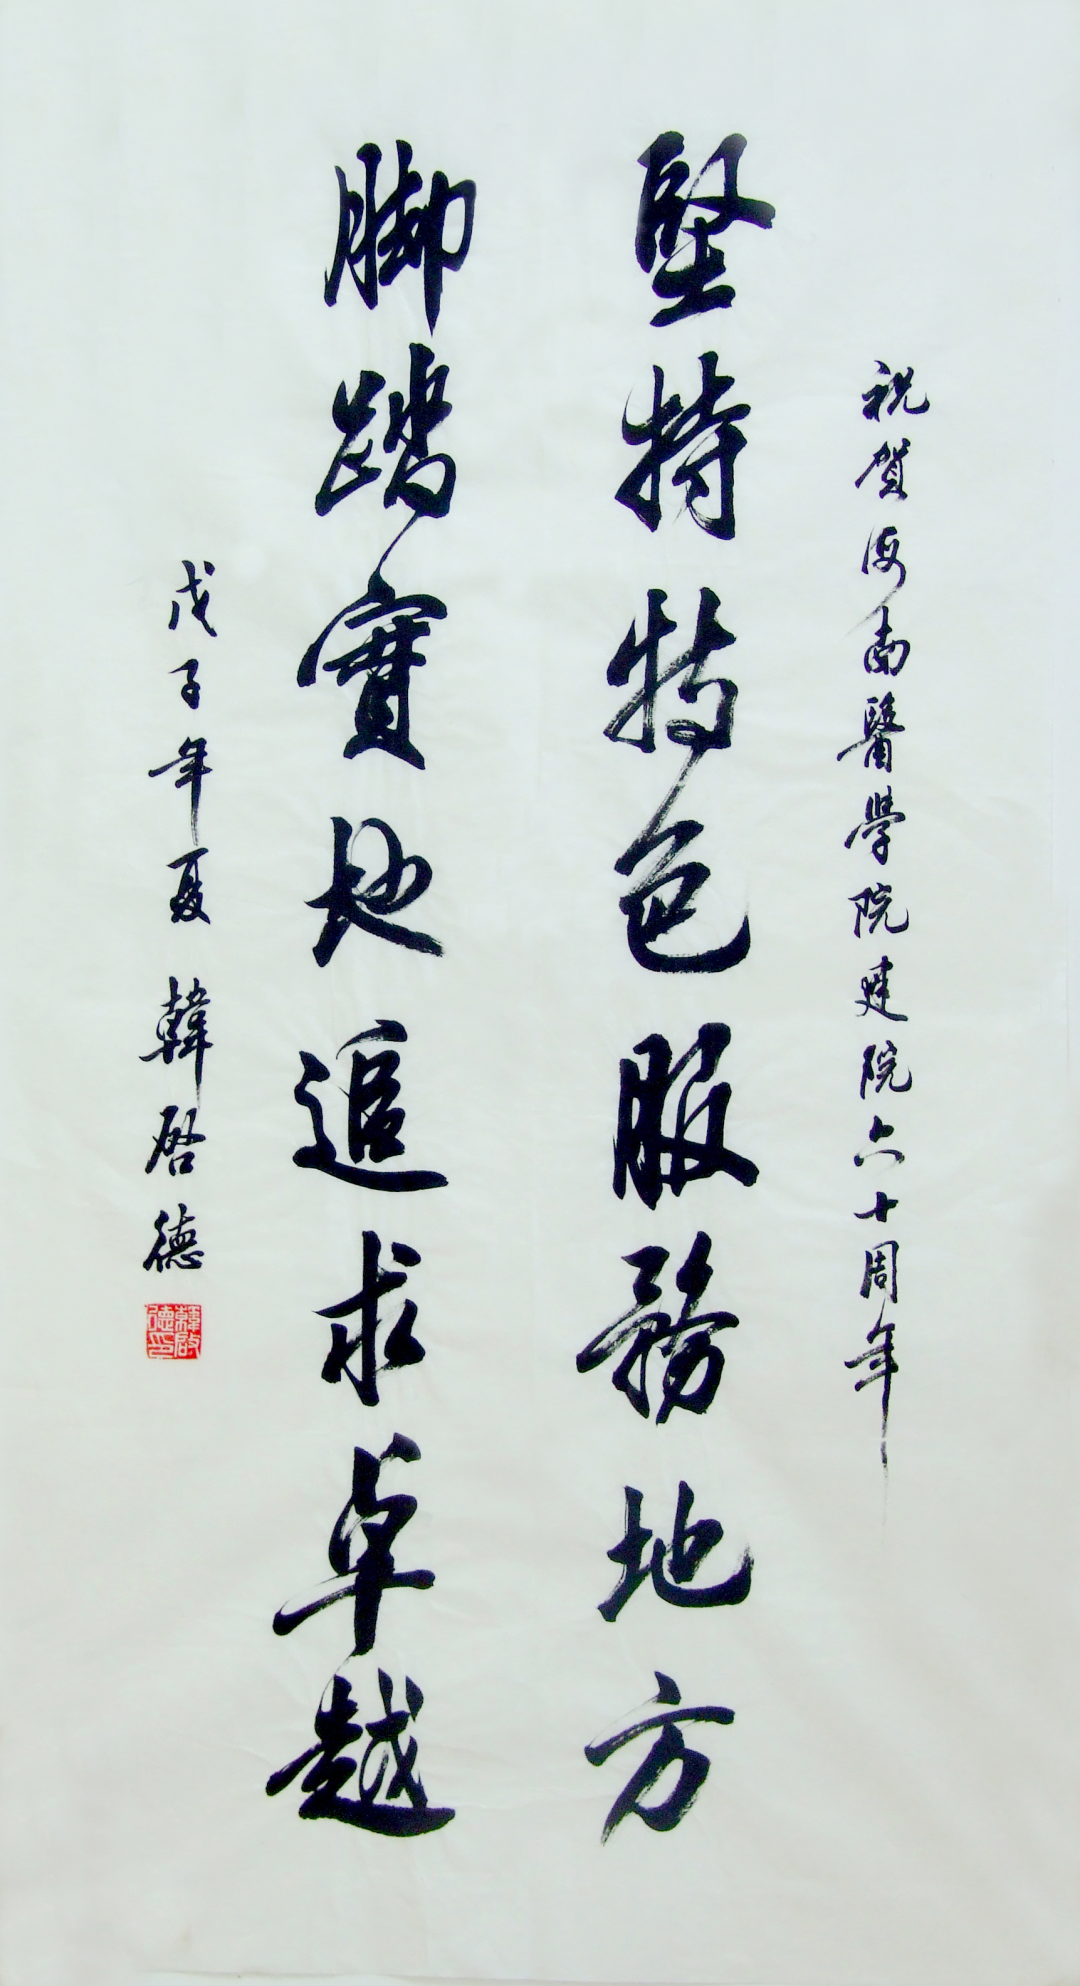 祝賀海南醫學院建院六十周年
堅持特色服務地方
脚踏實地追求卓越
戊子年夏 韓启德
韓啟德印